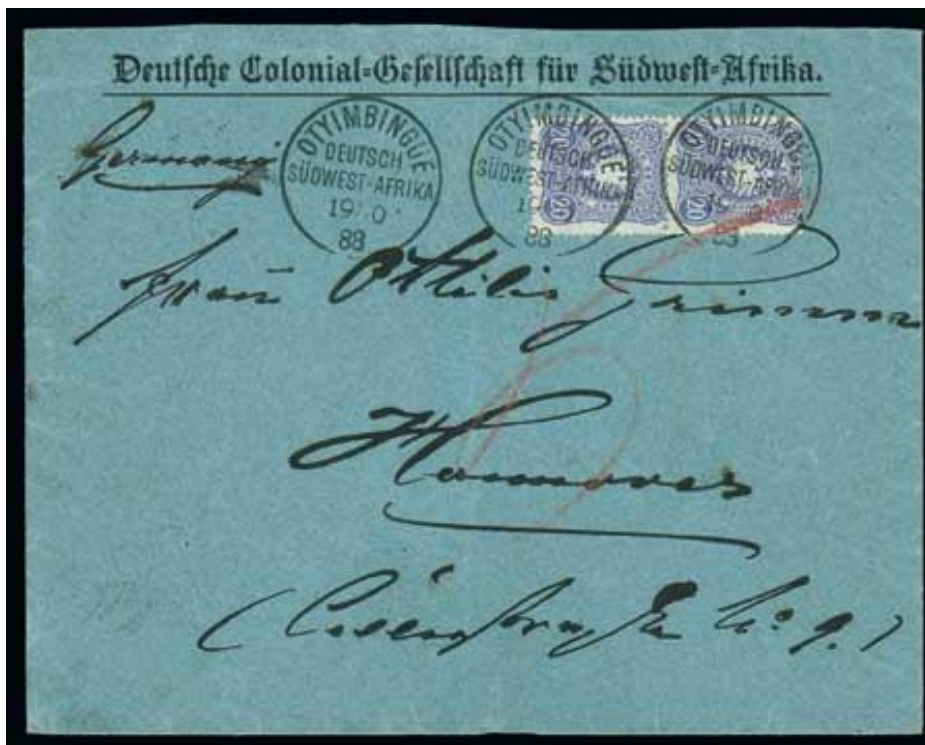 Deutsche Colonial-Gesellschaft für Südwest-Afrika.
Germany
OTYIMBINGUE
DEUTSCH
SÜDWEST-AFRIKA
19 0
88
OTYIMBINGUE
DEUTSCH
SÜDWEST-AFRIKA
88
OTYIMBINGUE
DEUTSCH
SÜDWEST-AFRIKA
88
20
20
20
Frau Ottilie Grimm
Hannover
No 9.)